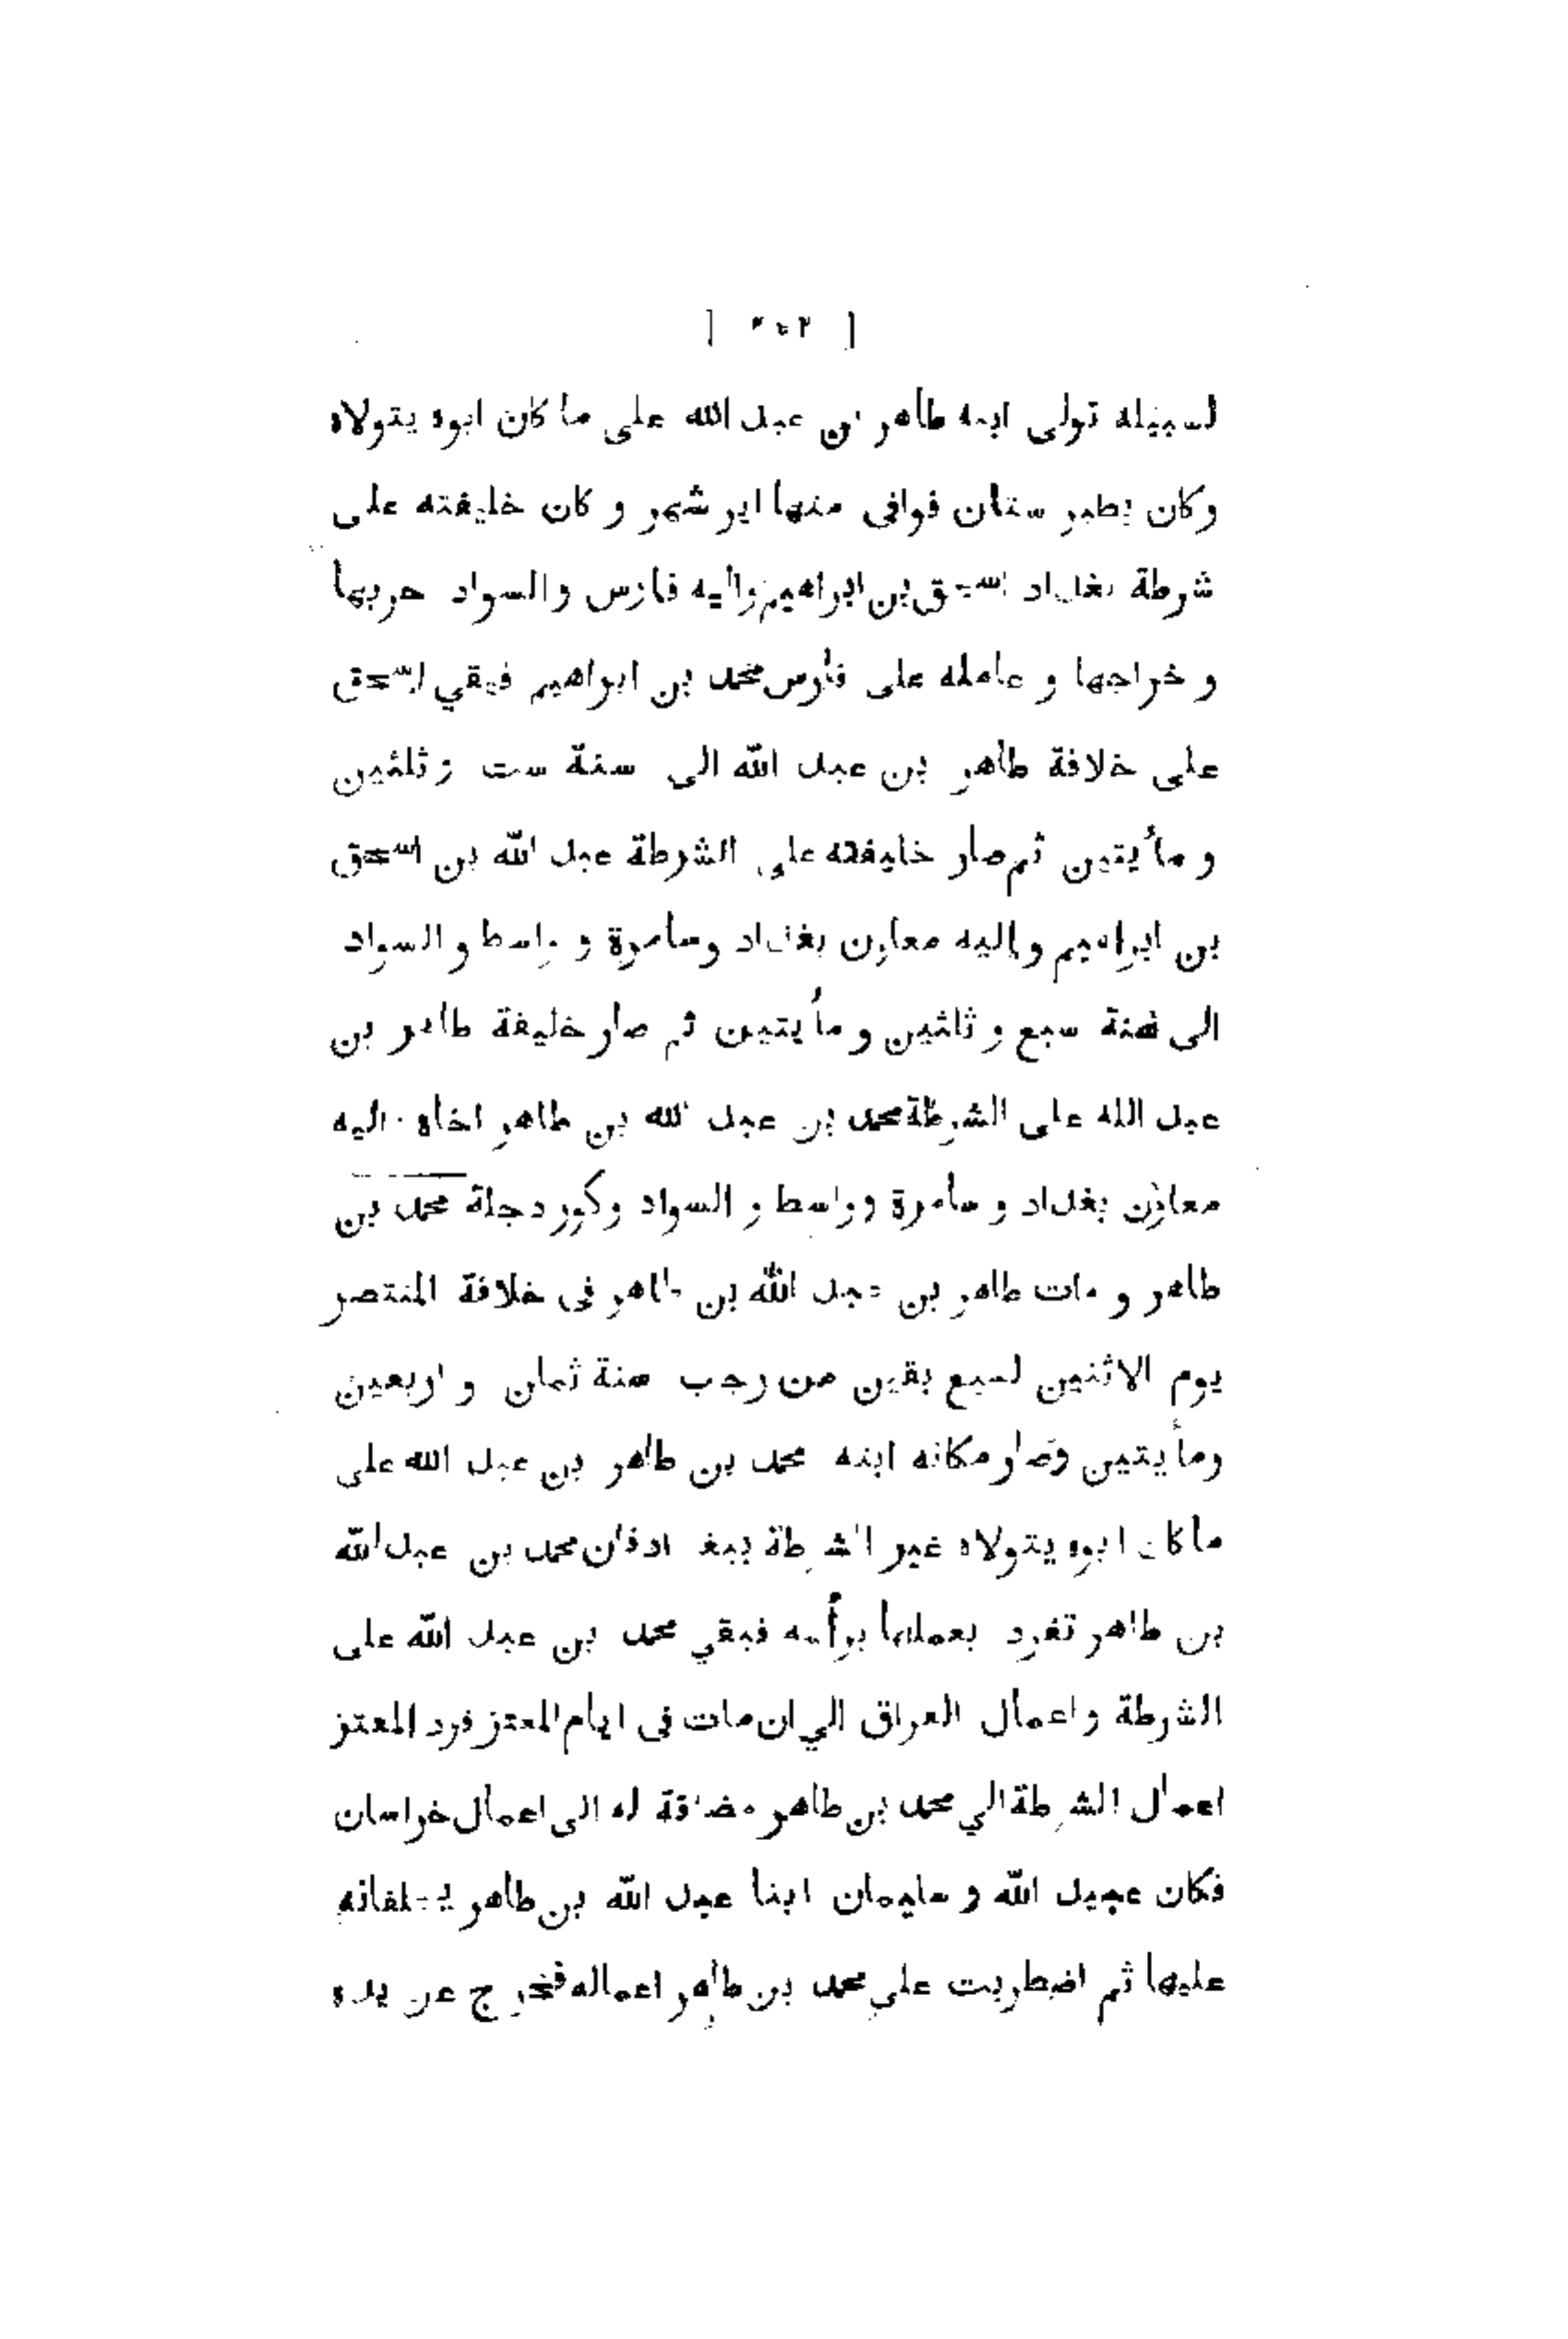 لسبيله تولى ابنه طاهر بن عبد الله على ما كان ابوه يتولاه
وكان بطبر ستان فوافى منها ابر شهر و كان خليفته على
شرطة بغداد اسحق بن ابراهيم واليه فارس والسواد حربها
و خراجها و عامله على فارس محمد بن ابراهيم فبقي اسحق
على خلافة طاهر بن عبد الله الى سنة ست و ثلثين
و مأيتين ثم صار خليفته على الشرطة عبد الله بن اسحق
بن ابراهيم واليه معاون بغداد وسامرة و واسط و السواد
الى سنة سبع و ثلثين و مأيتين ثم صار خليفة طاهر بن
عبد الله على الشرطة محمد بن عبد الله بن طاهر اخاه اليه
معاون بغداد و سامرة وواسط و السواد وكور دجلة محمد بن
طاهر و مات طاهر بن عبد الله بن طاهر فى خلافة المنتصر
يوم الاثنين لسبع بقين من رجب سنة ثمان و اربعين
ومأيتين وصار مكانه ابنه محمد بن طاهر بن عبد الله على
ما كان ابوه يتولاه غير الشرطة ببغداد فان محمد بن عبد الله
بن طاهر تفرد بعملها برأسه فبقي محمد بن عبد الله على
الشرطة واعمال العراق الي ان مات فى ايام المعتز فرد المعتز
اعمال الشرطة الي محمد بن طاهر مضافة له الى اعمال خراسان
فكان عبيد الله و سليمان ابنا عبد الله بن طاهر يخلفانه
عليها ثم اضطربت علي محمد بن طاهر اعماله فخرج عن يده